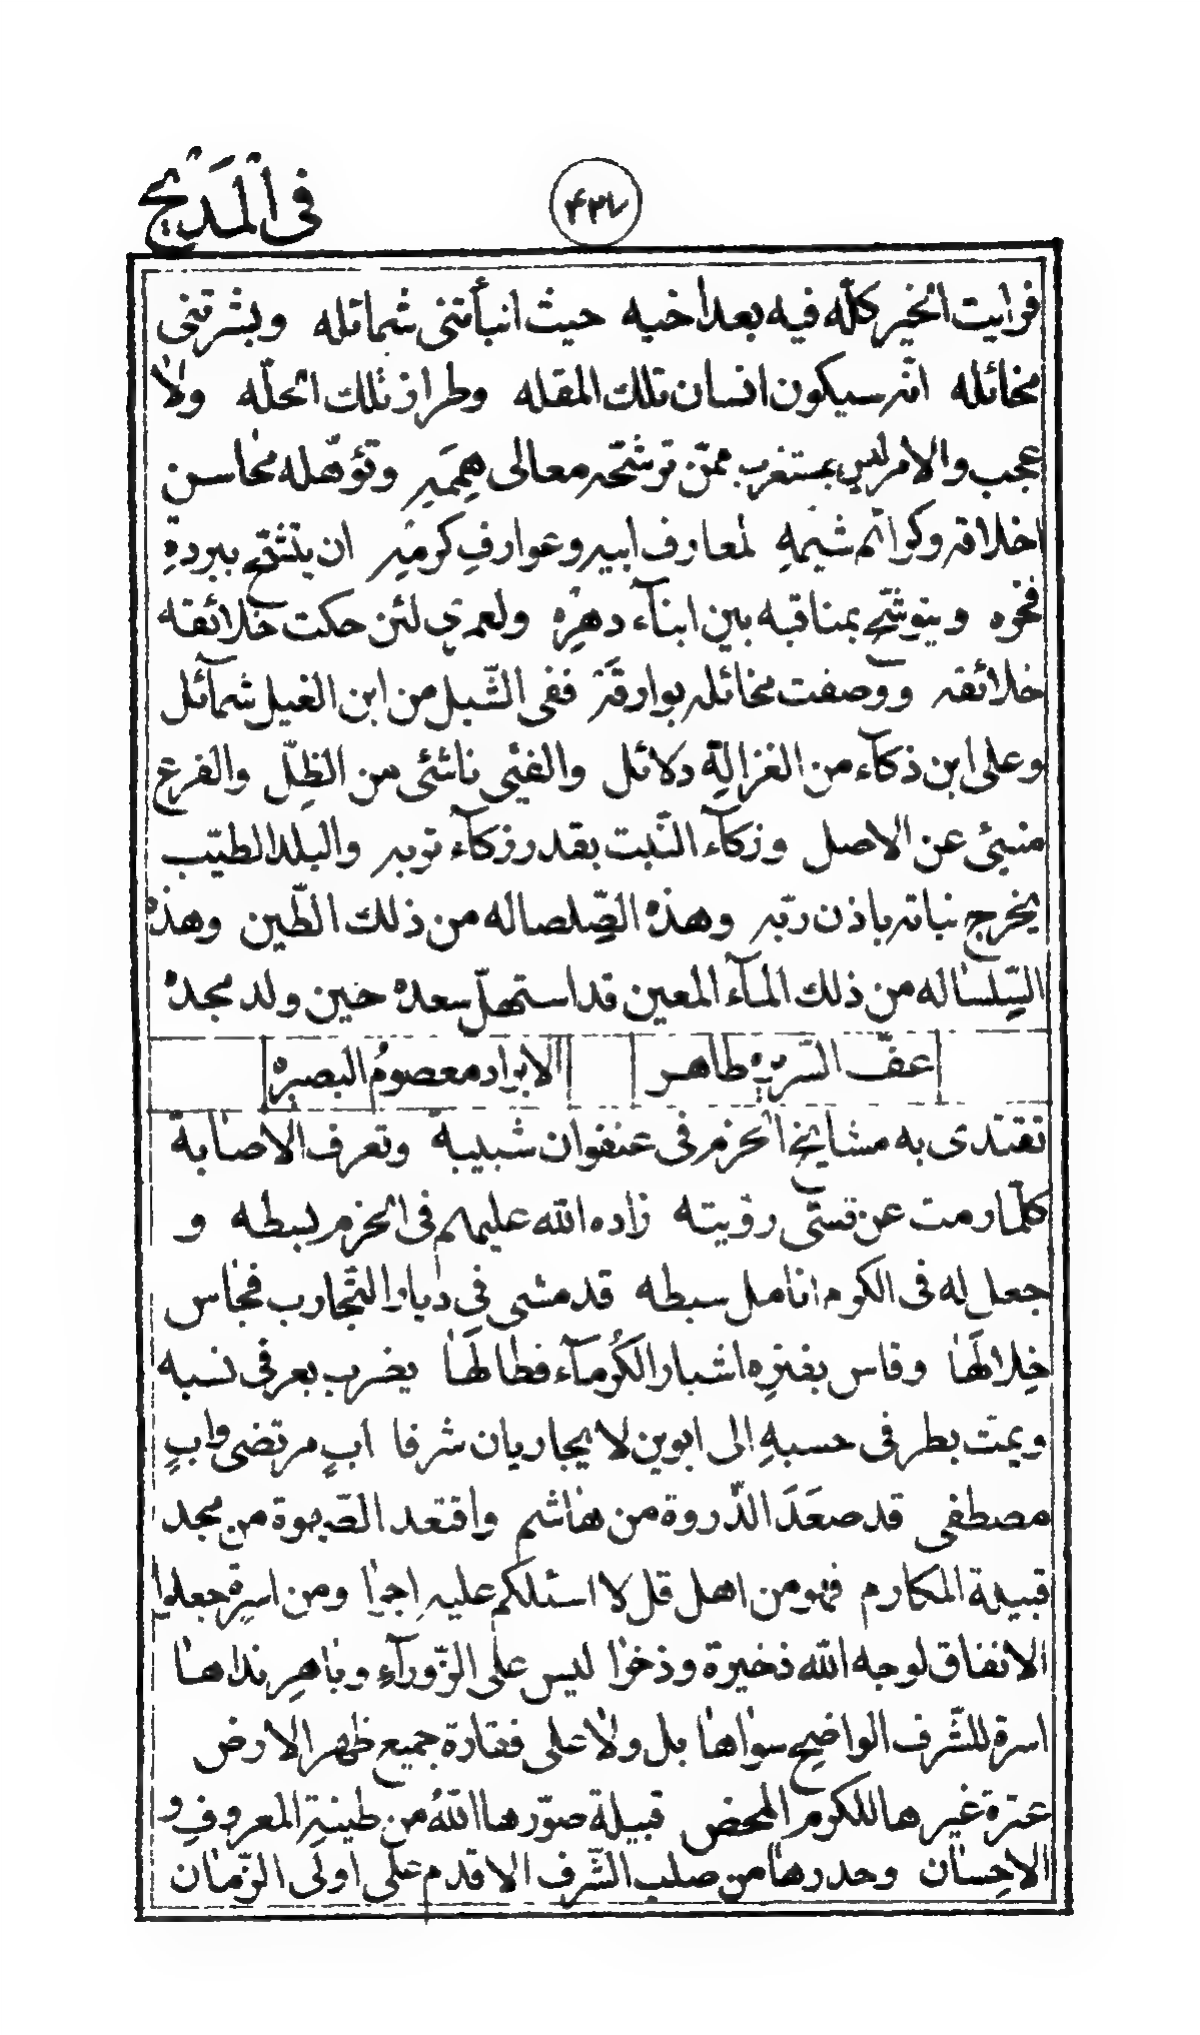 فى المديح
۴۲۷
فرايت الخير كلّه فيه بعد اخيه حيث انبأتنى شمائله وبشرتنى
مخائله انّه سيكون انسان تلك المقله وطراز تلك الحلّه ولا
عجب والامر ليس بمستغرب ممّن توشّحه معالى هممه وتؤهّله محاسن
اخلاقه وكرائم شيمه لمعارف ابيه وعوارف كرمه ان يتنقّح ببردة
فخره ويتوشّح بمناقبه بين ابناء دهره ولعمرى لئن حكت خلائقه
خلائقه ووصفت مخائله بوارقه ففى الشّبل من ابن الغيل شمائل
وعلى ابن ذكاء من الغزالة دلائل والفيئ ناشئ من الظلّ والفرع
منبئ عن الاصل وزكاء النّبت بقدر زكاء توبه والبلد الطيّب
يخرج نباته باذن ربّه وهذه الصّلصاله من ذلك الطّين وهذه
السّلساله من ذلك الماء المعين قد استهلّ سعده حين ولد مجده
عفّ السّريره طاهر الابراد معصوم البصيره
تقتدى به مشايخ الحزم فى عنفوان شبيبة وتعرف الاصابة
كلّما رمت عن قسّى رؤيته زاده الله عليهم فى الحزم بسطه و
جعل له فى الكرم انامل سبطه قد مشى فى ديار التّجارب فجاس
خلالها وقاس بفتره اشبار الكرماء فطالها يضرب بعرق فى نسبه
ويمتّ بطرف فى حسبه الى ابوين لا يجاريان شرفا اب مرتضى واب
مصطفى قد صعد الذّروة من هاشم واقتعد الصّهوة من مجد
قبيلة المكارم فهو من اهل قل لا اسئلكم عليه اجرا ومن اسرة جعلوا
الانفاق لوجه الله ذخيرة وذخرا ليس على الزّوراء وباهر نداها
اسرة للشّرف الواضح سواها بل ولا على فقارة جميع ظهر الارض
عترة غيرها للكرم المحض قبيلة صوّرها الله من طينة المعروف و
الاحسان وحدرها من صلب الشّرف الاقدم على اولى الزّمان